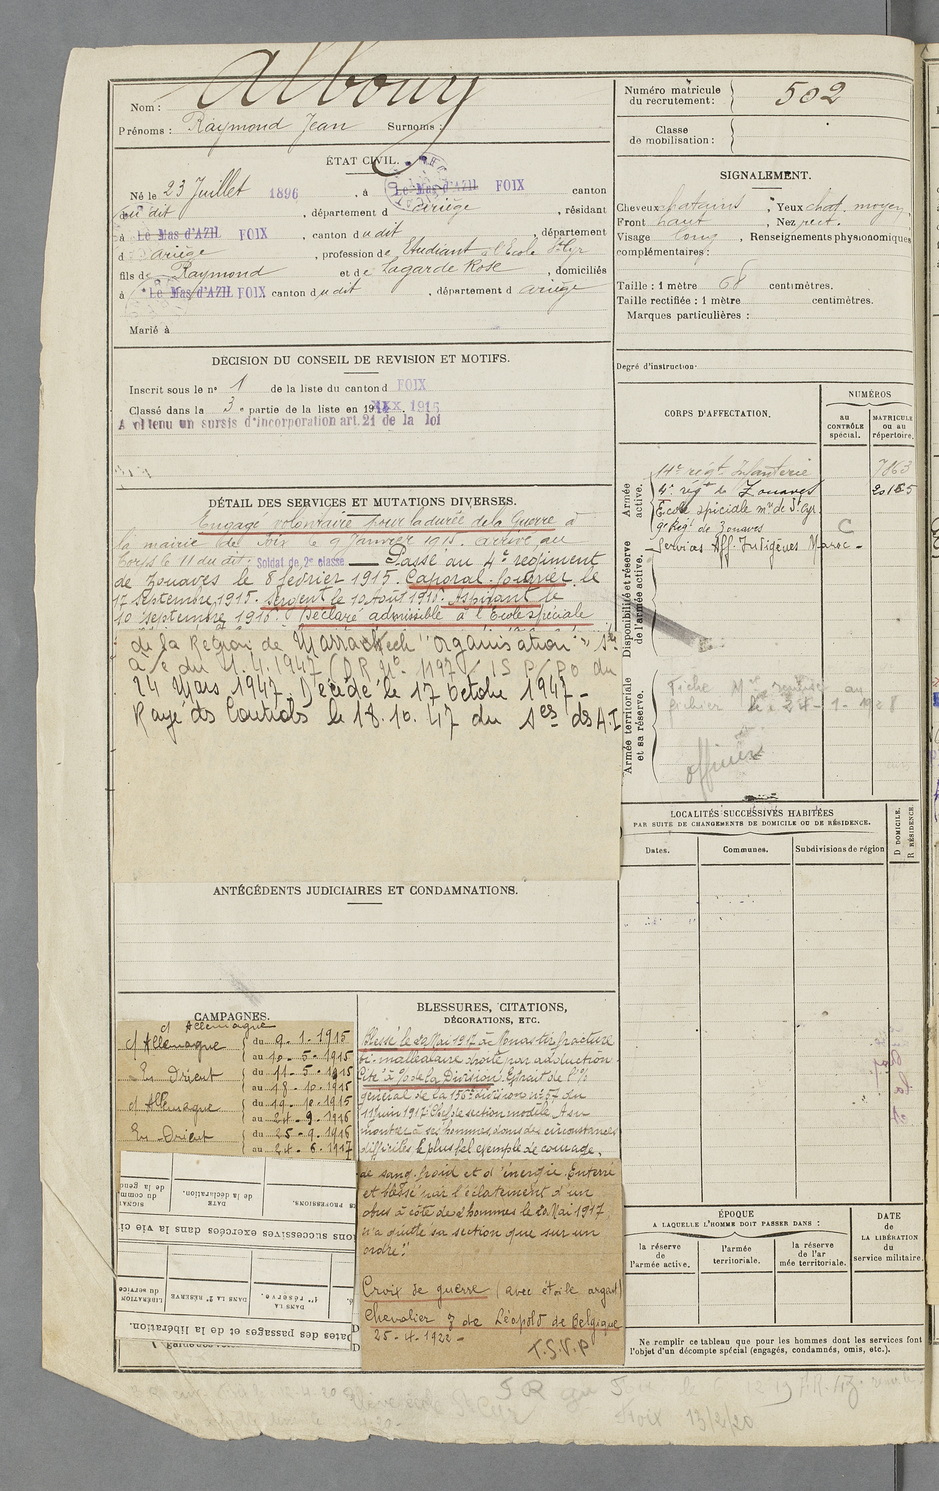 Nom : Albouy
Prénoms : Raymond Jean Surnoms :
ÉTAT CIVIL.
Né le 23 Juillet 1896, à Le Mas d'AZIL FOIX canton
dudit, département d Ariège, résidant
à Le Mas d'AZIL FOIX, canton dudit, département
d Ariège, profession de Etudiant à l'Ecole St Cyr
fils de Raymond et de Lagarde Rose, domiciliés
à Le Mas d'AZIL FOIX canton dudit, département d Ariège
Marié à
DÉCISION DU CONSEIL DE REVISION ET MOTIFS.
Inscrit sous le n° 1 de la liste du canton d FOIX
Classé dans la 3e partie de la liste en 1915
A obtenu un sursis d'incorporation art. 21 de la loi
DÉTAIL DES SERVICES ET MUTATIONS DIVERSES.
Engagé volontaire pour la durée de la Guerre à
la mairie de Foix le 9 Janvier 1915. Arrivé au
Corps le 11 du dit. Soldat de 2e classe. Passé au 4e régiment
de Zouaves le 8 février 1915. Caporal fourrier le
17 septembre 1915. Sergent le 10 Août 1915. Aspirant le
10 septembre 1915. Déclaré admissible à l'Ecole spéciale
de la Région de Marrackech "organisation"
à/c du 1.4.1947 (D.R. N° 1197/IS P/PO du
24 Mars 1947. Décédé le 17 octobre 1947-
Rayé des Contrôles le 18.10.47 du Ses des A.I
ANTÉCÉDENTS JUDICIAIRES ET CONDAMNATIONS.
CAMPAGNES.
c/ Allemagne
c/ Allemagne du 9-1-1915
au 10-5-1915
En Orient du 11-5-1915
au 18-10-1915
c/ Allemagne du 19-10-1915
au 24-9-1916
En Orient du 25-9-1916
au 24-6-1917
SIGNAL
du comm
de la gend
DATE
de la déclaration.
PROFESSIONS.
ions successives exercées dans la vie ci
LIBÉRATION
du service
DANS LA 2e RÉSERVE
DANS LA
1re réserve.
Dates des passages et de la libération.
BLESSURES, CITATIONS,
DÉCORATIONS, ETC.
Blessé le 22 Mai 1917 à Monastir fracture
bi-malléolaire droite par adduction.
Cité à l'o/ de la Division. Extrait de l'o/
général de la 156e division n° 57 du
11 Juin 1917: Chef de section modèle. A su
montrer à ses hommes dans des circonstances
difficiles le plus bel exemple de courage,
de sang-froid et d'énergie. Enterré
et blessé par l'éclatement d'un
obus à côté de 2 hommes le 20 Mai 1917
n'a quitté sa section que sur un
ordre."
Croix de guerre (avec étoile argent)
Chevalier de Léopold de Belgique
25-4-1922-
T.S.V.P
Numéro matricule
du recrutement : 502
Classe
de mobilisation :
SIGNALEMENT.
Cheveux chatains, Yeux chat. moyen,
Front haut, Nez rect.
Visage long, Renseignements physionomiques
complémentaires :
Taille : 1 mètre 68 centimètres.
Taille rectifiée : 1 mètre centimètres.
Marques particulières :
Degré d'instruction
CORPS D'AFFECTATION.
NUMÉROS
au
CONTRÔLE
spécial.
MATRICULE
ou au
répertoire.
Armée
active.
14e régt Infanterie 7863
4e régt de Zouaves 20185
Ecole spéciale mre de St Cyr
9e Régt de Zouaves C
Services Aff. Indigènes Maroc-
Disponibilité et réserve
de l'armée active.
Armée territoriale
et sa réserve.
Fiche Mle remise au
fichier le 24-1-1928
officiers
LOCALITÉS SUCCESSIVES HABITÉES
PAR SUITE DE CHANGEMENTS DE DOMICILE OU DE RÉSIDENCE.
Dates.
Communes.
Subdivisions de région
D DOMICILE.
R RÉSIDENCE.
ÉPOQUE
A LAQUELLE L'HOMME DOIT PASSER DANS :
DATE
DE
LA LIBÉRATION
du
service militaire.
la réserve
de
l'armée active.
l'armée
territoriale.
la réserve
de l'ar
mée territoriale.
Ne remplir ce tableau que pour les hommes dont les services font
l'objet d'un décompte spécial (engagés, condamnés, omis, etc.).
Foix 13/2/20